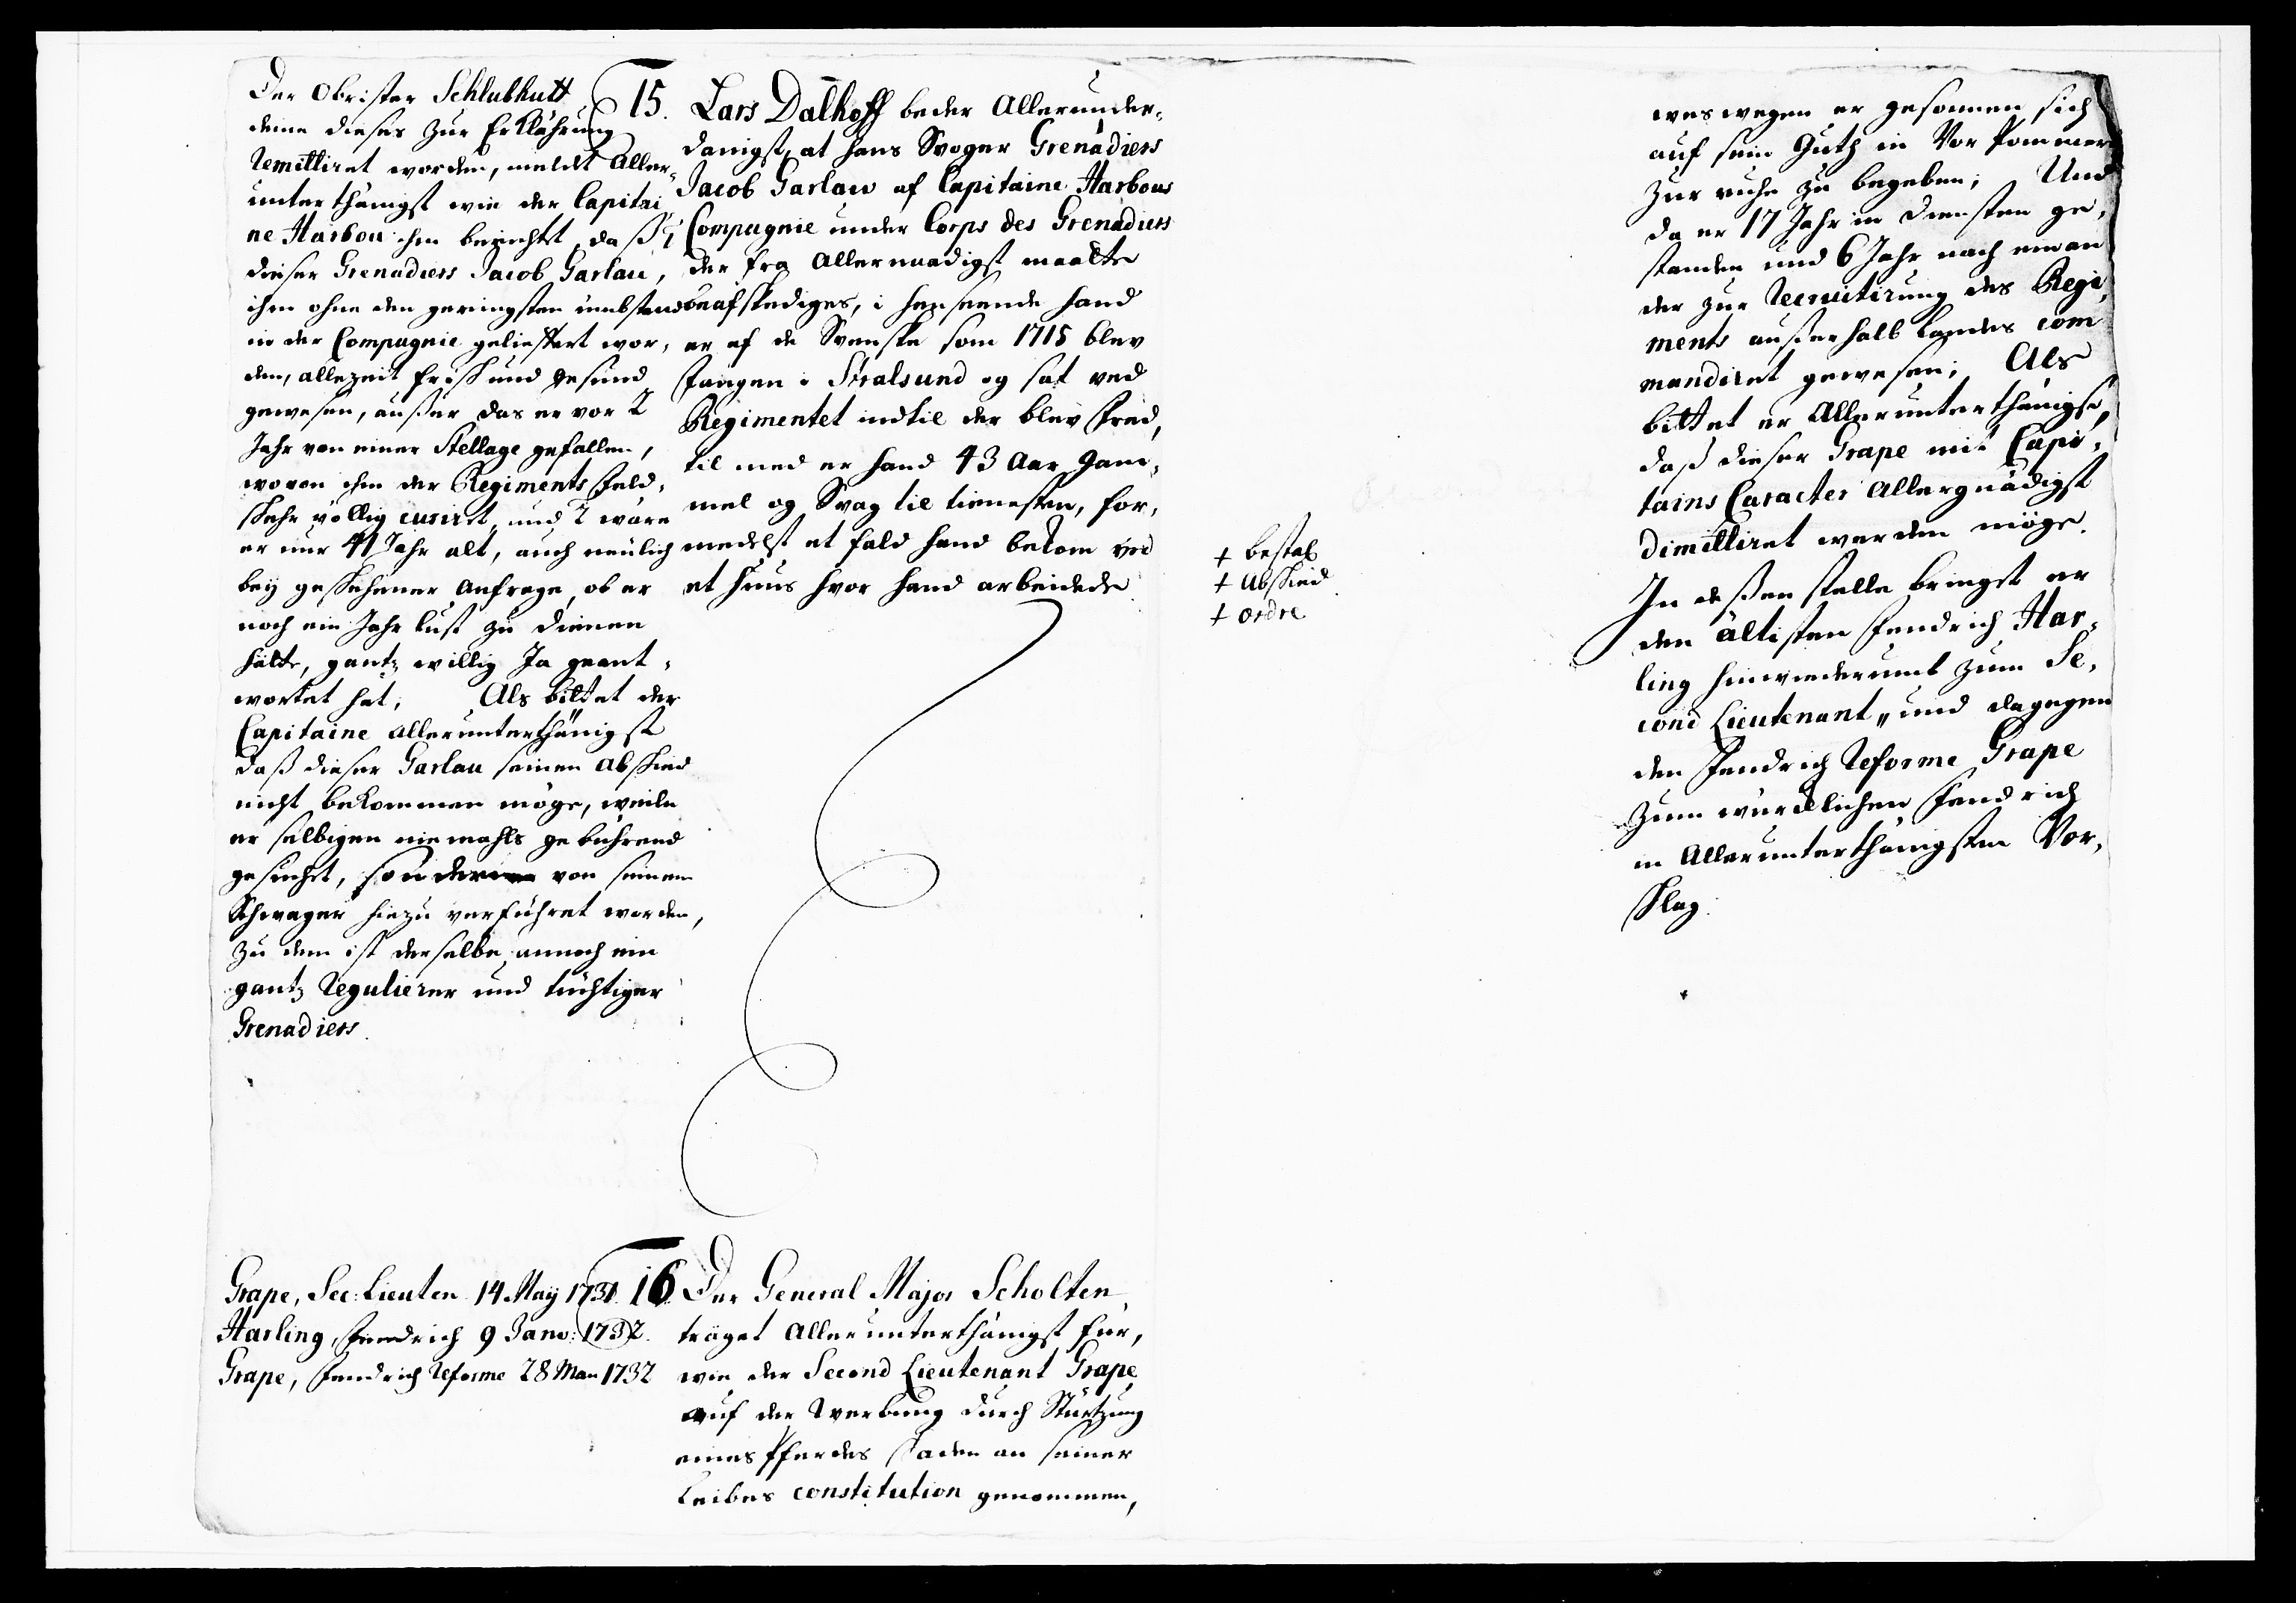 Der Obrister Schlubhutt
deme dieses zur Erklährung
remittiret worden, meldet Aller-
unterthänigst wie der Capitai
ne Harbou ihm berichtet, daß
dieser Grenadiers Jacob Garlau,
ihm ohne den geringsten umbstand
in der Compagnie geliefert wor-
den, allezeit frisch und gesund
gewesen, außer das er vor 2
Jahr von einer Stellage gefallen,
wovon ihm der Regiments Feld-
schehr völlig curiret, und wäre
er nur 41 Jahr alt, auch neulich
bey geschehener Anfrage, ob er
noch ein Jahr lust zu dienen
hätte, gantz willig Ja geant-
wortet hat; Als bittet der
Capitaine allerunterthänigst
daß dieser Garlau seinen Abschied
nicht bekommen möge, weile
er selbigen niemahls gebührend
gesuchet, sondern von seinem
Schwager hiezu verführet worden,
zu dem ist derselbe annoch ein
gantz regulierer und tüchtiger
Grenadiers.
15. Lars Dalhoff beder Allerunder-
danigst, at hans Svoger Grenadiers
Jacob Garlau af Capitaine Harbous
Compagnie under Corps des Grenadiers
der fra Allernaadigst maatte
beafskediges, i henseende hand
er af de Svenske som 1715 blev
fangen i Stralsund og sat ved
Regimentet indtil der blev Fred,
til med er hand 43 Aar gam-
mel og Svag til tienesten, for-
medelst et fald hand bekom ved
et Huus hvor hand arbeidede
Grape, Sec: Lieuten 14 May 1731.
Harling, Fendrich 9 Janv: 1732.
Grape, Fendrich reforme 28 Man 1732
16. Der General Major Scholten
träget Allerunterthänigst für,
wie der Second Lieutenant Grape
auf der Werbung durch Stürtzung
eines Pferdes schaden an seiner
Leibes constitution genommen,
+ bestal
+ Abschied
+ ordre
weswegen er gesonnen sich
auf sein Guth in Vor Pommer
zur ruhe zu begeben; Und
da er 17 Jahr in Diensten ge-
standen und 6 Jahr nach einan
der zur recruitirung des Regi
ments außerhalb Landes com
mandiret gewesen; Als
bittet er Allerunterthänigst,
daß dieser Grape mit Capi-
tains Caracter Allergnädigst
dimittiret werden möge.
In deßen stelle bringet er
den ältisten Fendrich Har-
ling hinwiederumb zum Se-
cond Lieutenant, und dagegen
den Fendrich reforme Grape
zum würcklichen Fendrich
in Allerunterthänigsten Vor-
schlag.